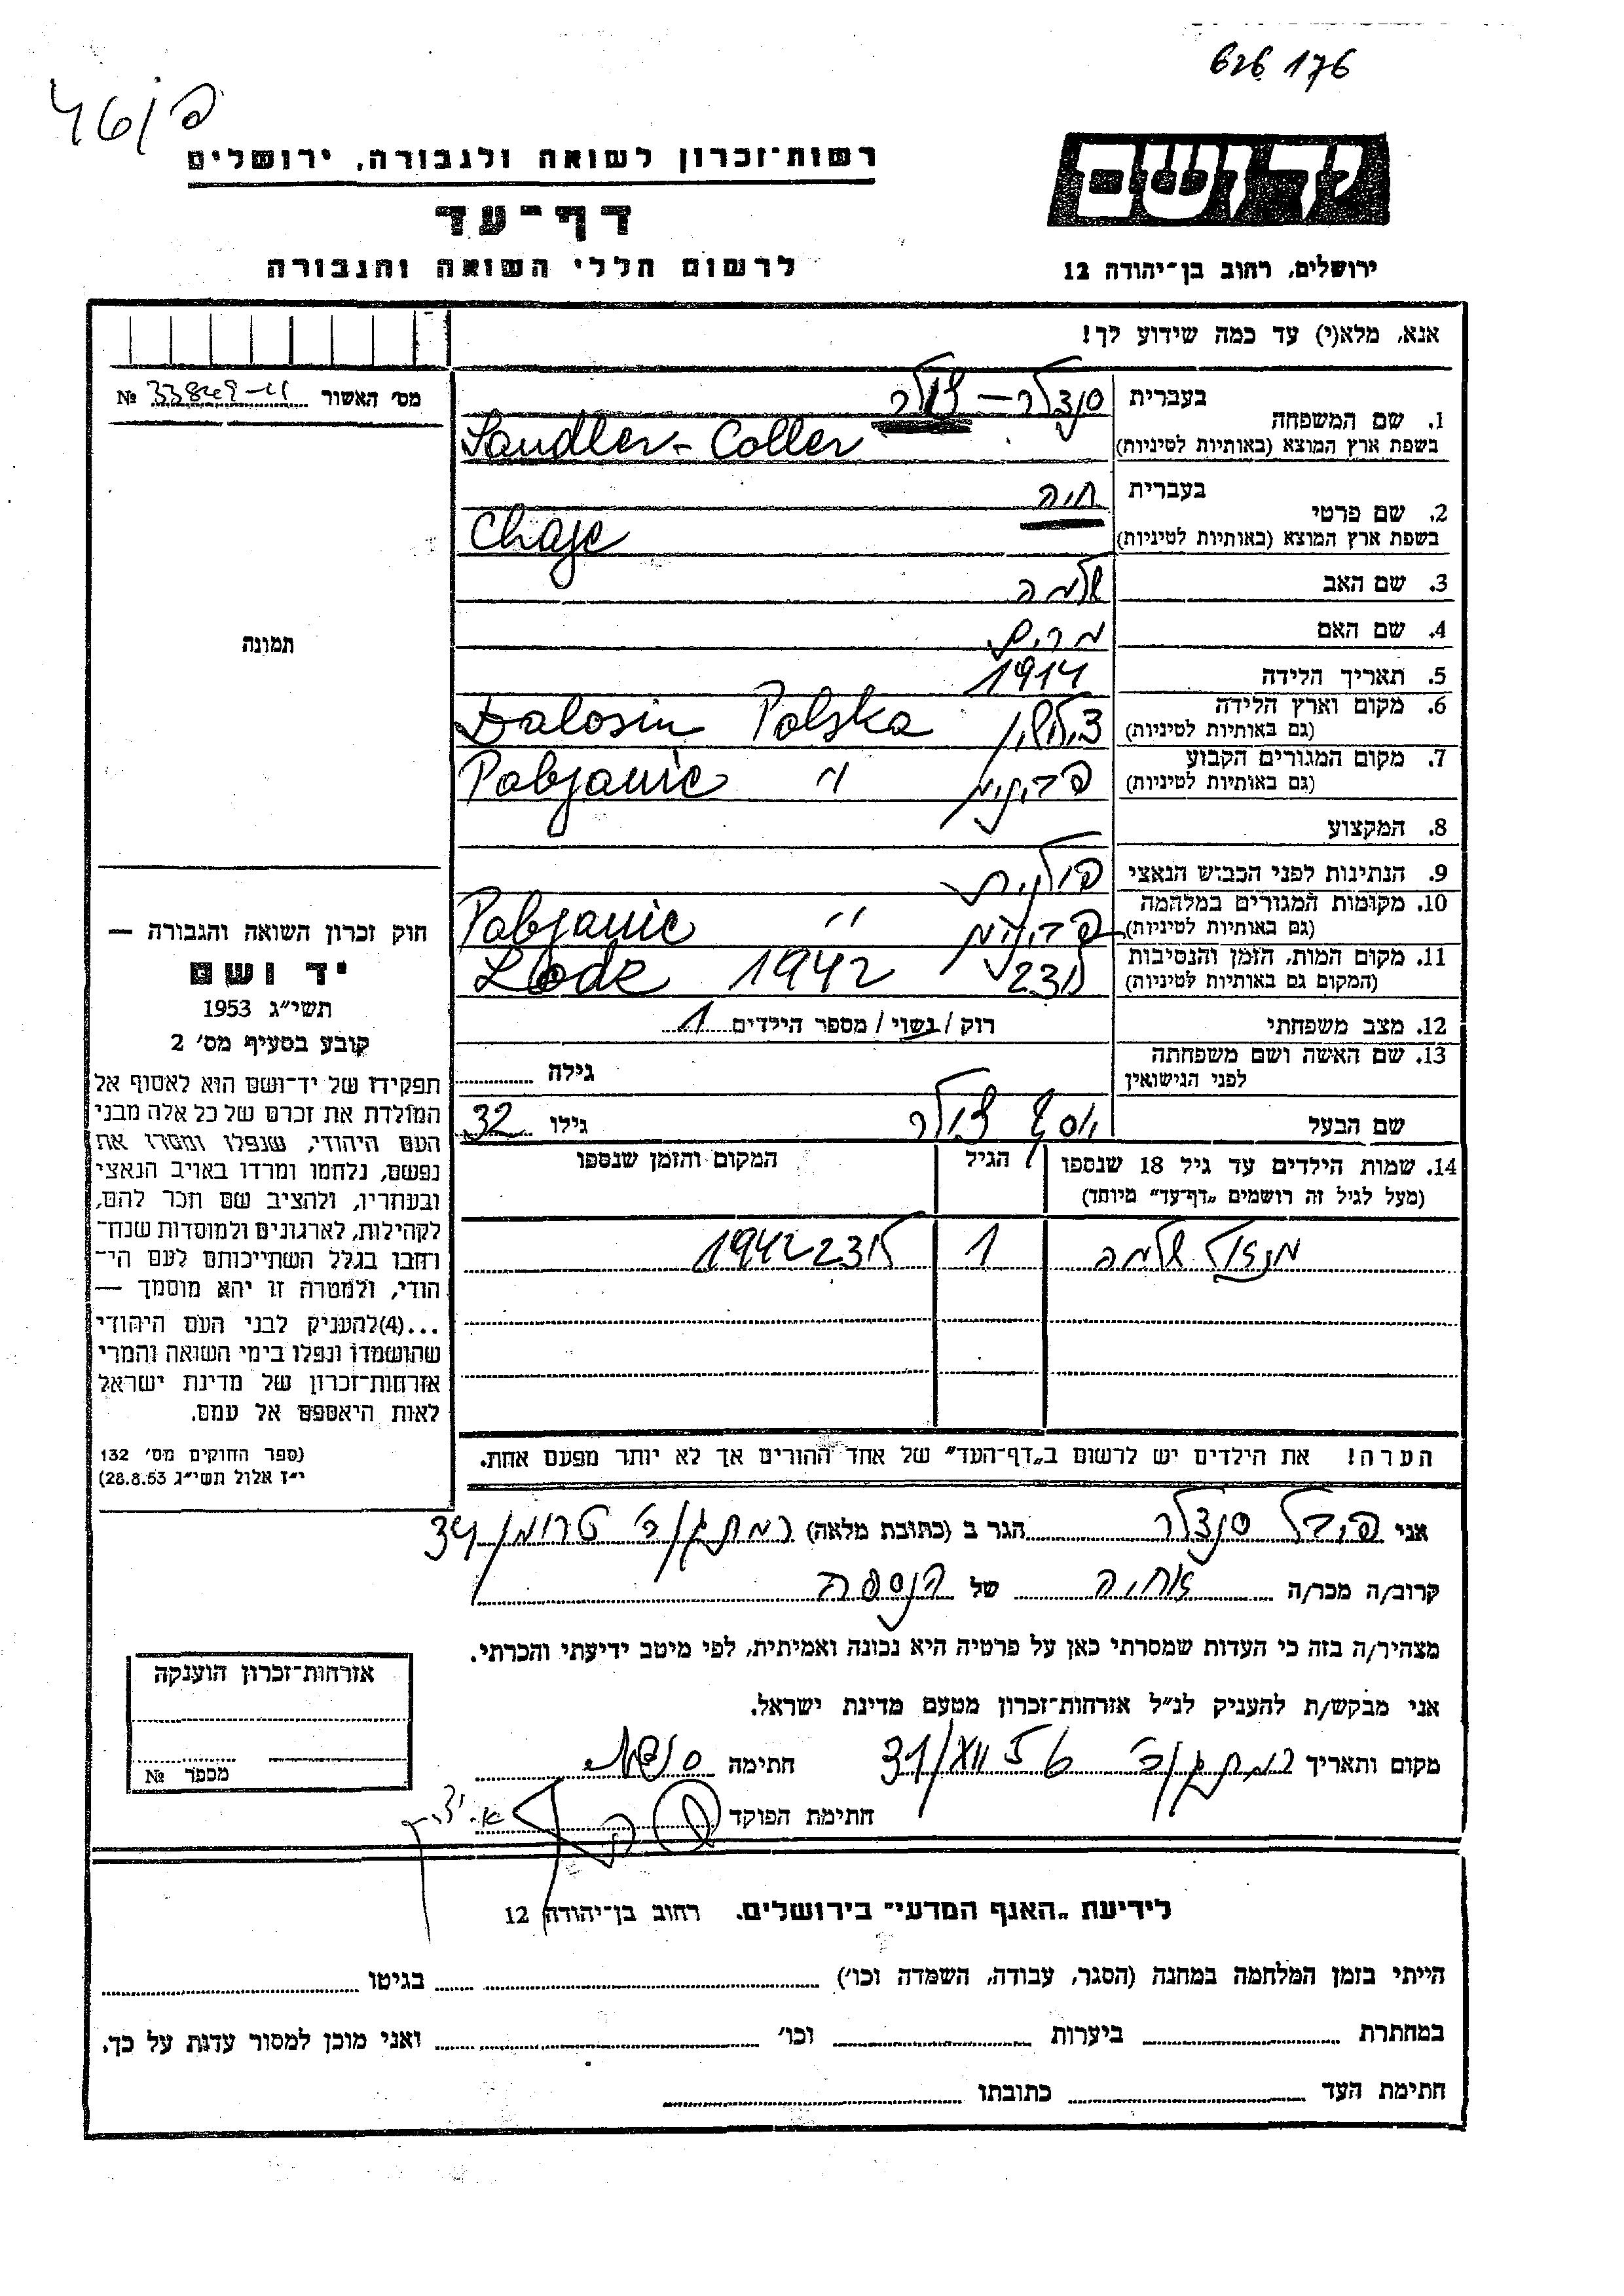 626 176
רשות־זכרון לשואה ולגבורה, ירושלים
דף־עד
לרשום חללי השואה והגבורה
ידושם
ירושלים, רחוב בן־יהודה 12
אנא, מלא(י) עד כמה שידוע לך!
מס׳ האשור № 33849-11
1. שם המשפחה
בעברית סנדלר – צולר
בשפת ארץ המוצא (באותיות לטיניות) Sandler - Coller
2. שם פרטי
בעברית חיה
בשפת ארץ המוצא (באותיות לטיניות) Chaje
3. שם האב שלמה
4. שם האם מרים
5. תאריך הלידה 1914
6. מקום וארץ הלידה
(גם באותיות לטיניות) Dalosin Polska
7. מקום המגורים הקבוע
(גם באותיות לטיניות) Pabjanic "
8. המקצוע
9. הנתינות לפני הכבוש הנאצי פולנית
10. מקומות המגורים במלחמה
(גם באותיות לטיניות) Pabjanic "
11. מקום המות, הזמן והנסיבות
(המקום גם באותיות לטיניות) לודז 1942 Lodz
12. מצב משפחתי רוק / נשוי / מספר הילדים 1
13. שם האשה ושם משפחתה
לפני הנישואין גילה
שם הבעל יוסף צולר גילו 32
14. שמות הילדים עד גיל 18 שנספו הגיל המקום והזמן שנספו
(מעל לגיל זה רושמים „דף־עד״ מיוחד)
שלמה 1 לודז 1942
הערה! את הילדים יש לרשום ב„דף־העד״ של אחד ההורים אך לא יותר מפעם אחת.
תמונה
חוק זכרון השואה והגבורה —
יד ושם
תשי״ג 1953
קובע בסעיף מס׳ 2
תפקידו של יד־ושם הוא לאסוף אל
המולדת את זכרם של כל אלה מבני
העם היהודי, שנפלו ומסרו את
נפשם, נלחמו ומרדו באויב הנאצי
ובעוזריו, ולהציב שם וזכר להם,
לקהילות, לארגונים ולמוסדות שנח־
רחבו בגלל השתייכותם לעם הי־
הודי, ולמטרה זו יהא מוסמך —
...(4)להעניק לבני העם היהודי
שהושמדו ונפלו בימי השואה והמרי
אזרחות־זכרון של מדינת ישראל
לאות היאספם אל עמם.
(ספר החוקים מס׳ 132
י״ז אלול תשי״ג 28.8.53)
אני סנדלר הגר ב (כתובת מלאה) רמת גן טרומן 34
קרוב/ה מכר/ה אחיה של הנספה
מצהיר/ה בזה כי העדות שמסרתי כאן על פרטיה היא נכונה ואמיתית, לפי מיטב ידיעתי והכרתי.
אני מבקש/ת להעניק לנ״ל אזרחות־זכרון מטעם מדינת ישראל.
מקום ותאריך רמת גן 31/XII 56 חתימה
חתימת הפוקד
אזרחות־זכרון הוענקה
מספר №
לידיעת „האגף המדעי״ בירושלים. רחוב בן־יהודה 12
הייתי בזמן המלחמה במחנה (הסגר, עבודה, השמדה וכו׳) בגיטו
במחתרת ביערות וכו׳ ואני מוכן למסור עדות על כך.
חתימת העד כתובתו